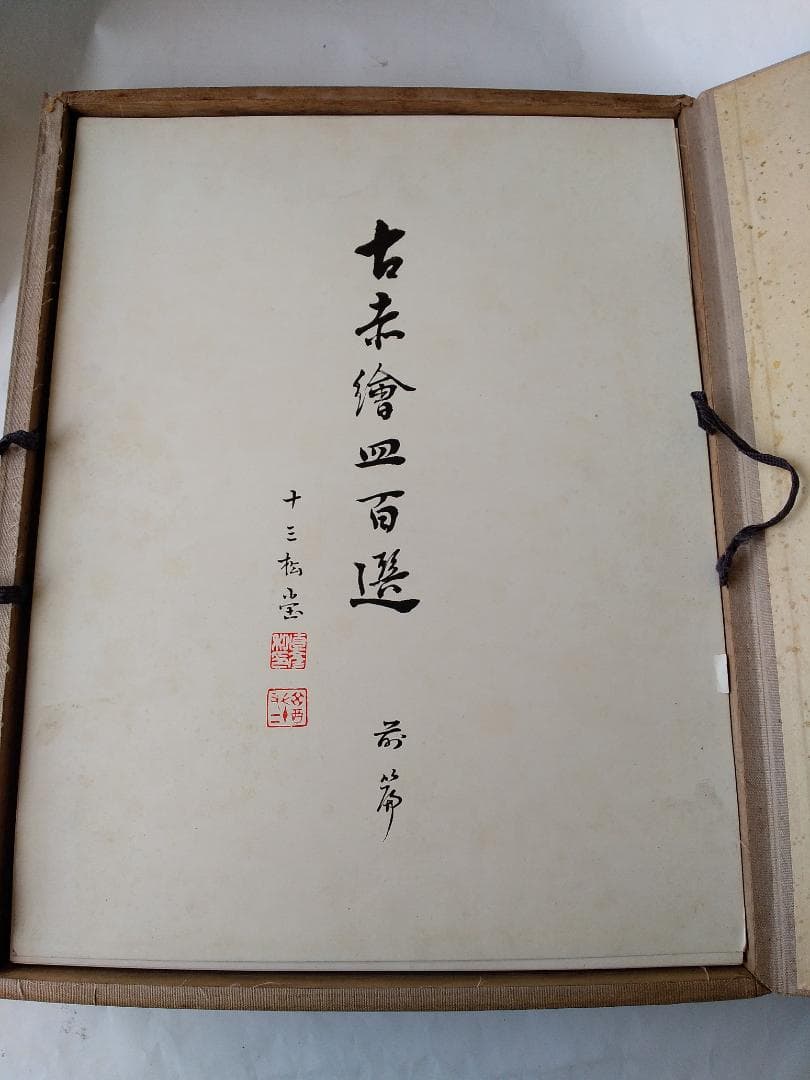 古赤繪皿百選
前篇
十三松堂